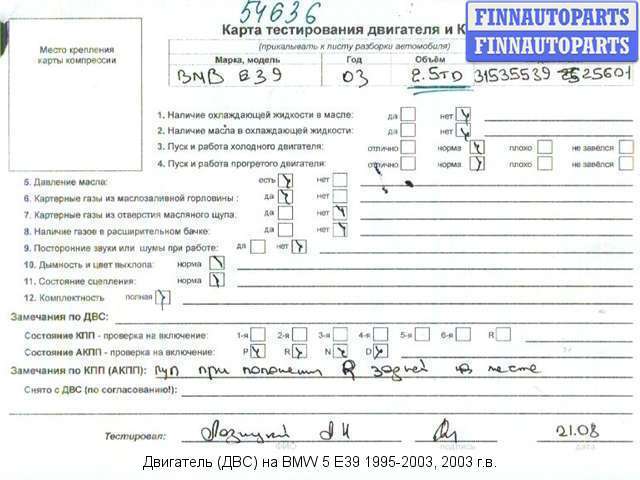 54636
Карта тестирования двигателя и К
FINNAUTOPARTS
FINNAUTOPARTS
Место крепления карты компрессии
(прикалывать к листу разборки автомобиля)
Марка, модель Год Объём
BMB E39 03 2.5TD 31535539 25601
1. Наличие охлаждающей жидкости в масле: да нет
2. Наличие масла в охлаждающей жидкости: да нет
3. Пуск и работа холодного двигателя: отлично норма плохо не завёлся
4. Пуск и работа прогретого двигателя: отлично норма плохо не завёлся
5. Давление масла: есть нет
6. Картерные газы из маслозаливной горловины: да нет
7. Картерные газы из отверстия масляного щупа. да нет
8. Наличие газов в расширительном бачке: да нет
9. Посторонние звуки или шумы при работе: да нет
10. Дымность и цвет выхлопа: норма
11. Состояние сцепления: норма
12. Комплектность полная
Замечания по ДВС:
Состояние КПП - проверка на включение: 1-я 2-я 3-я 4-я 5-я 6-я R
Состояние АКПП - проверка на включение: P R N D
Замечания по КПП (АКПП): при R задней на месте
Снято с ДВС (по согласованию!):
Тестировал: 21.08
ФИО подпись дата
Двигатель (ДВС) на BMW 5 E39 1995-2003, 2003 г.в.